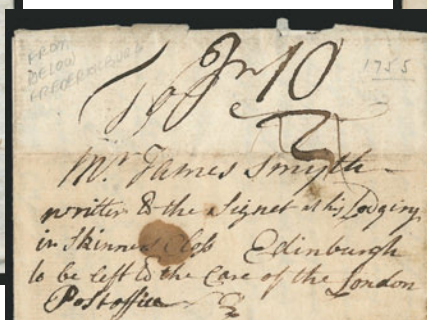 FROM
BELOW
FREDERICKSBURG
1755
To
In 10
2
Mr. James Smyth
writter to the Signet at his Lodging
in Skinners Closs Edinburgh
to be left to the Care of the London
Postoffice